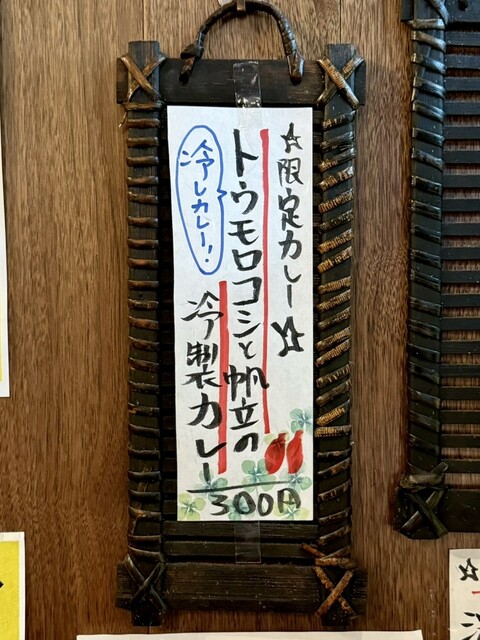 ☆限定カレー☆
トウモロコシと帆立の
冷製カレー
冷しカレー!!
300円